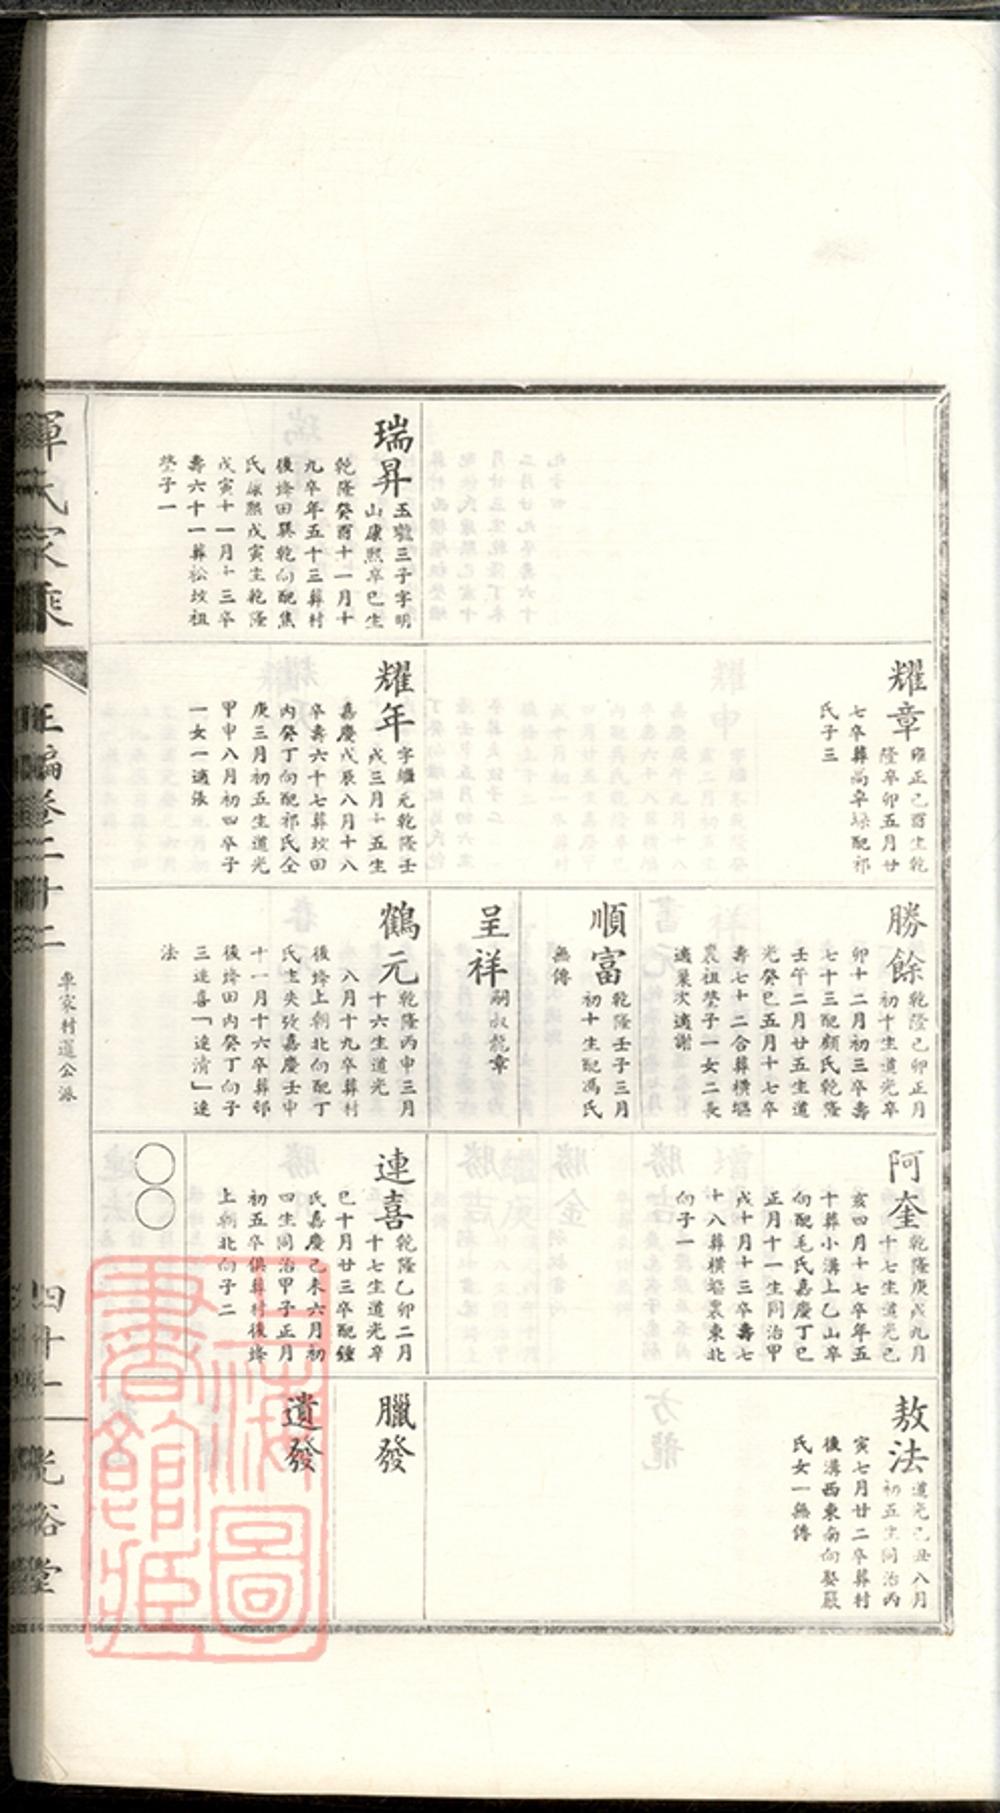 瑞昇
玉璇三子字明
山康熙辛巳生
乾隆癸酉十一月十
九卒年五十三葬村
後烽田巽乾向配焦
氏康熙戊寅生乾隆
戊寅十一月十三卒
壽六十一葬松坟祖
塋子一
耀章
雍正己酉生乾
隆辛卯五月廿
七卒葬高阜垛配祁
氏子三
耀年
字繼元乾隆壬
戌三月十五生
嘉慶戊辰八月十八
卒壽六十七葬坟田
內癸丁向配祁氏仝
庚三月初五生道光
甲申八月初四卒子
一女一適張
勝餘
乾隆己卯正月
初十生道光辛
卯十二月初三卒壽
七十三配顧氏乾隆
壬午二月廿五生道
光癸巳五月十七卒
壽七十二合葬橫塸
裏祖塋子一女二長
適巢次適謝
順富
乾隆壬子三月
初十生配馮氏
無傳
呈祥
嗣叔龍章
鶴元
乾隆丙申三月
十六生道光
八月十九卒葬村
後烽上朝北向配丁
氏生失攷嘉慶壬申
十一月十六卒葬邨
後烽田內癸丁向子
三連喜「連清」連
法
阿奎
乾隆庚戌九月
十七生道光己
亥四月十七卒年五
十葬小溝上乙山辛
向配毛氏嘉慶丁巳
正月十一生同治甲
戌十月十三卒壽七
十八葬橫塸裏東北
向子一
連喜
乾隆乙卯二月
十七生道光辛
巳十月廿三卒配鍾
氏嘉慶己未六月初
四生同治甲子正月
初五卒俱葬村後烽
上朝北向子二
〇〇
敖法
道光己丑八月
初五生同治丙
寅七月廿二卒葬村
後溝西東南向娶嚴
氏女一無傳
臘發
遺發
惲氏家乘
正編卷二十二
車家村選公派
四十一
光裕堂
上海圖
書館藏